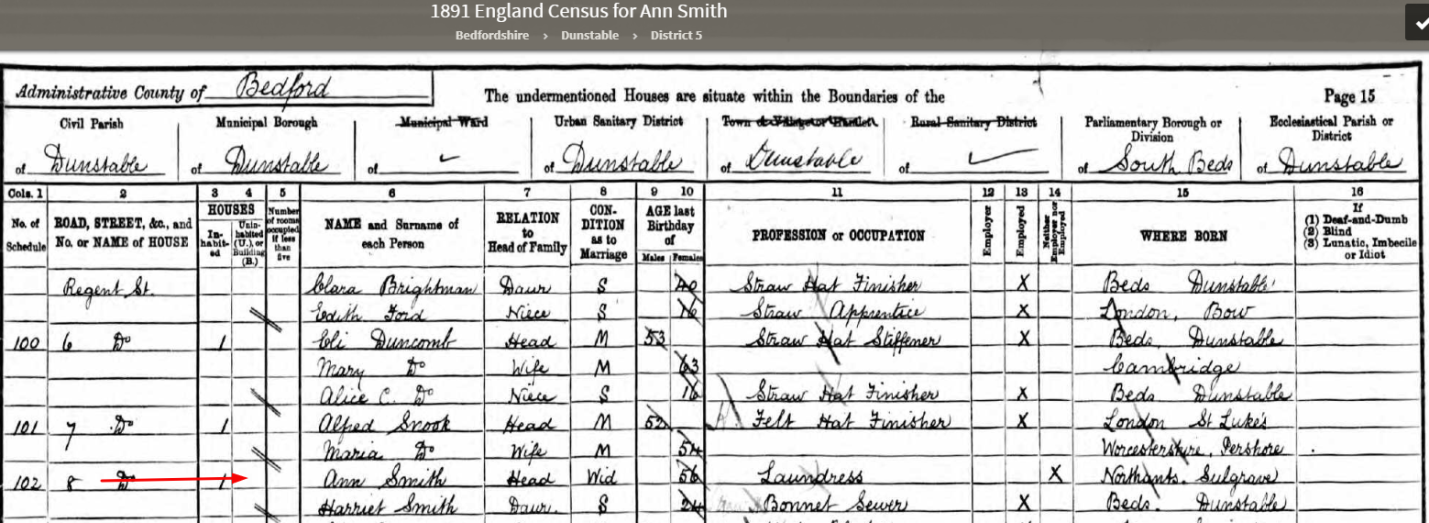 1891 England Census for Ann Smith
Bedfordshire > Dunstable > District 5
Administrative County of Bedford
The undermentioned Houses are situate within the Boundaries of the
Page 15
Civil Parish
Municipal Borough
Municipal Ward
Urban Sanitary District
Town or Village or Hamlet
Rural Sanitary District
Parliamentary Borough or Division
Ecclesiastical Parish or District
of Dunstable
of Dunstable
of
of Dunstable
of Dunstable
of
of South Beds
of Dunstable
Cols. 1 2 3 4 5 6 7 8 9 10 11 12 13 14 15 16
No. of Schedule
ROAD, STREET, &c., and No. or NAME of HOUSE
HOUSES
In-habit-ed
Unin-habited (U.), or Building (B.)
Number of rooms occupied if less than five
NAME and Surname of each Person
RELATION to Head of Family
CON-DITION as to Marriage
AGE last Birthday of
Males Females
PROFESSION or OCCUPATION
Employer
Employed
Neither Employer nor Employed
WHERE BORN
If
(1) Deaf-and-Dumb
(2) Blind
(3) Lunatic, Imbecile or Idiot
Regent St. Clara Brightman Daur S 40 Straw Hat Finisher X Beds Dunstable
Edith Ford Niece S 16 Straw Apprentice X London, Bow
100 6 Do 1 Eli Duncomb Head M 53 Straw Hat Stiffener X Beds Dunstable
Mary Do Wife M 63 Cambridge
Alice C. Do Niece S 16 Straw Hat Finisher X Beds Dunstable
101 7 Do 1 Alfred Snook Head M 52 Felt Hat Finisher X London St Luke's
Maria Do Wife M 54 Worcestershire, Pershore
102 8 Do 1 Ann Smith Head Wid 56 Laundress X Northants. Sulgrave
Harriet Smith Daur. S 24 Bonnet Sewer X Beds. Dunstable